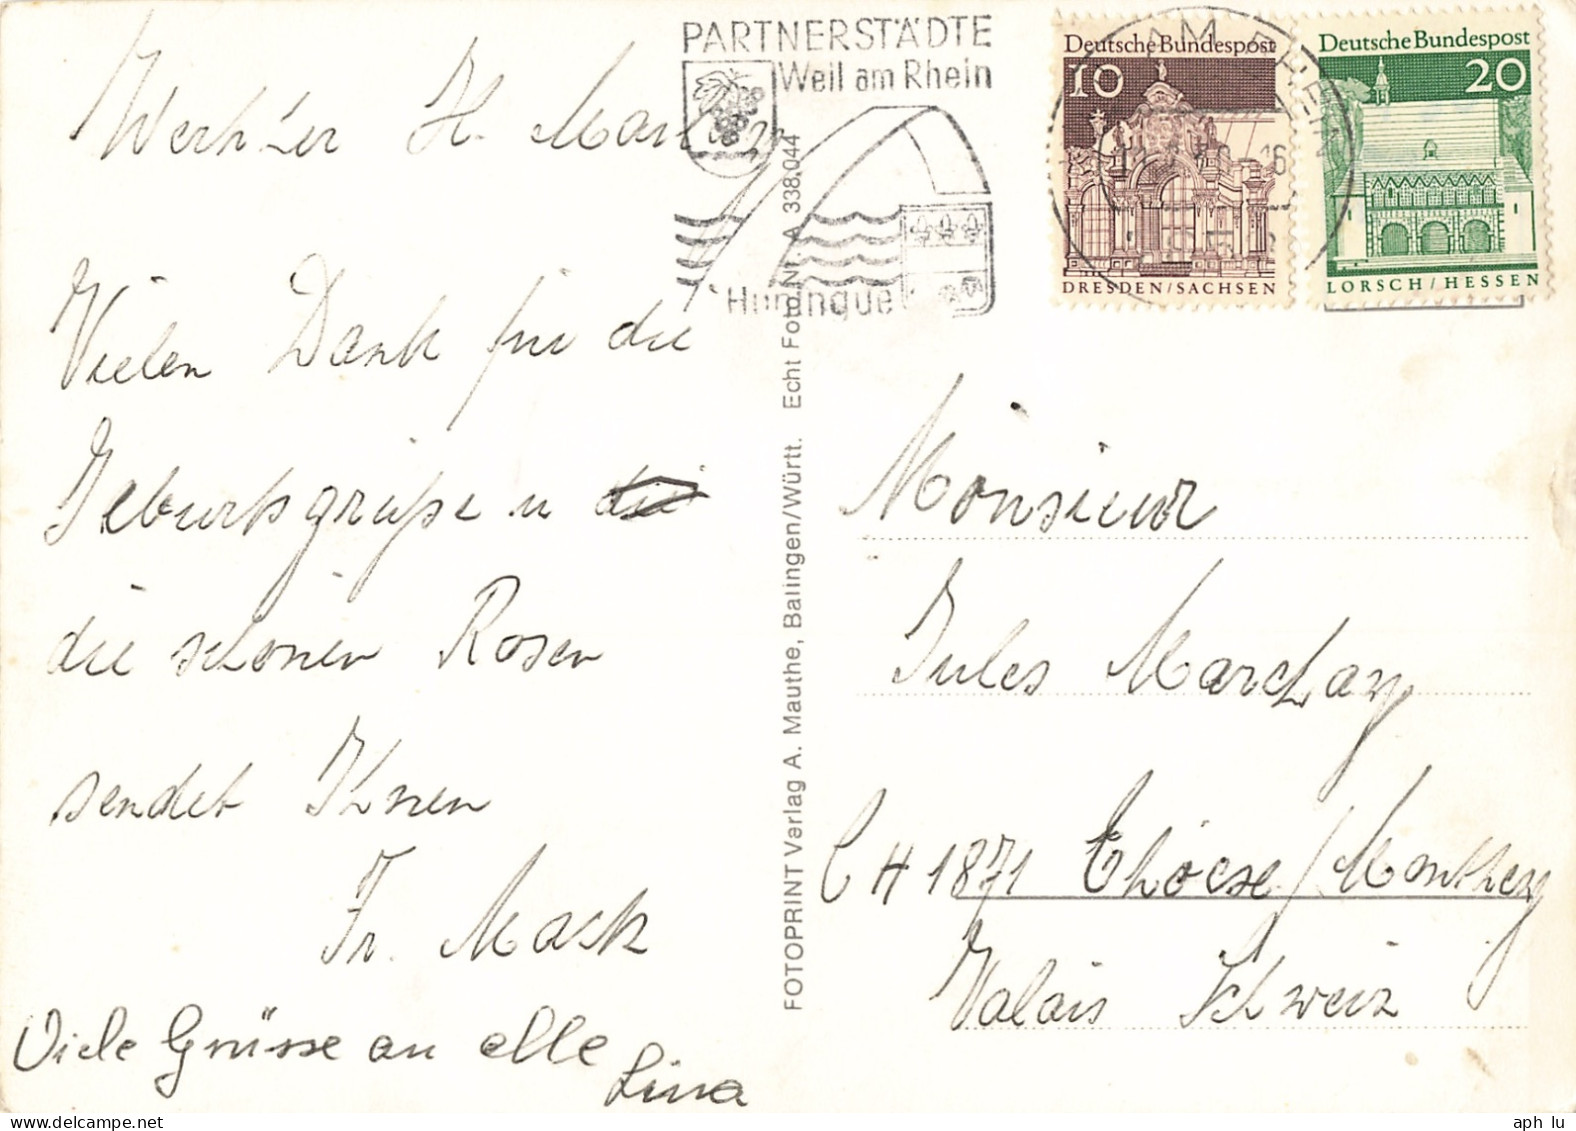 PARTNERSTÄDTE
Weil am Rhein
Huningue
Deutsche Bundespost
10
DRESDEN/SACHSEN
Deutsche Bundespost
20
LORSCH/HESSEN
Werhter H.
Vielen Dank für die
Geburtsgrüße u die
die schönen Rosen
sendet Ihnen
Fr. Mack
Viele Grüsse an elle
Lina
FOTOPRINT Verlag A. Mauthe, Balingen/Württ. Echt Foto Nr. A 338.044
Monsieur
Jules Marclay
CH 1871 Choëse/Monthey
Valais Schweiz
aph lu